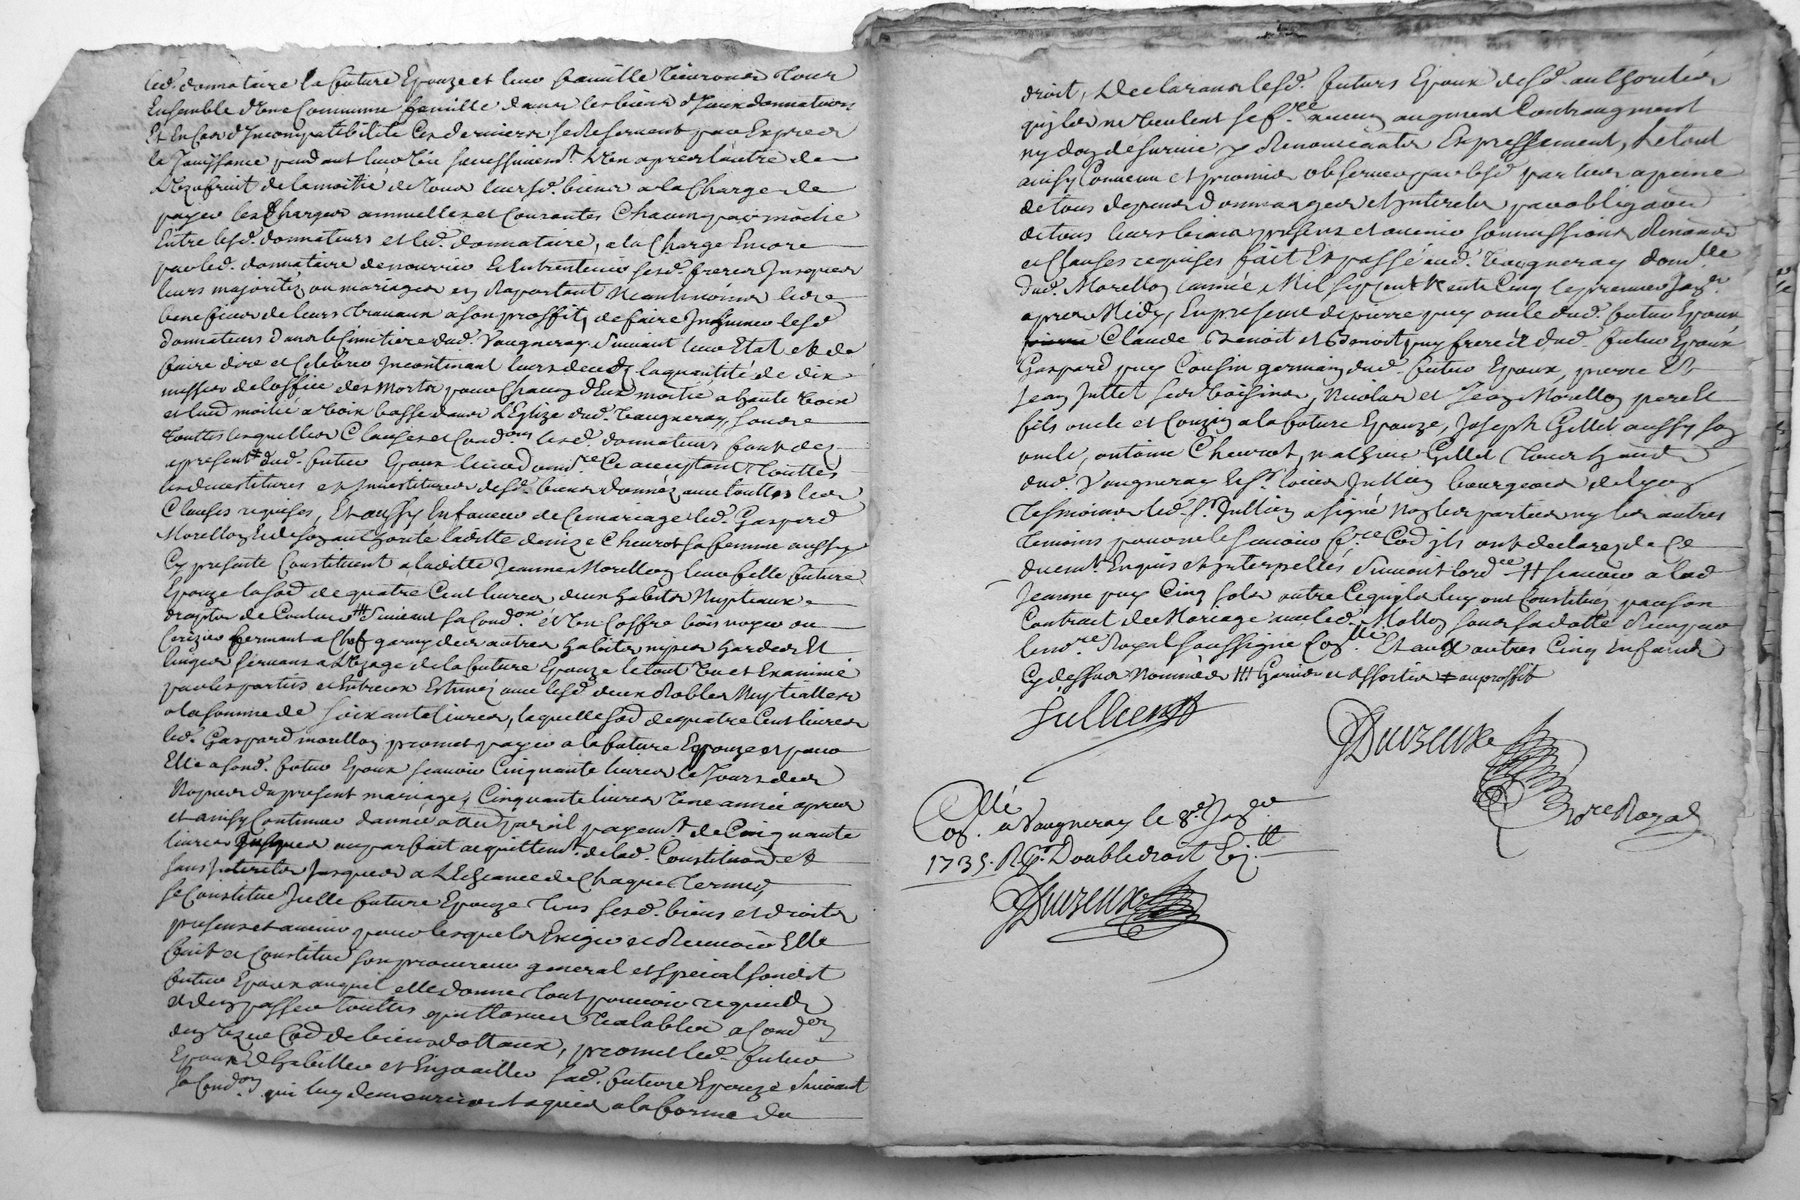 led. donnataire la future Epouze et leur famille vivront tous
Ensemble d'une Commune famille dans les biens desd. donnateurs
Et En Cas d'Incompatibilité Ces derniers se Reservent par Exprès
la Jouissance pendant leur vie successivemt. L'un apres l'autre de
L'uzufruit de la moitié de tous leursd. biens a la Charge de
payer les Charges annuelles et Courantes Chacun par moitié
Entre lesd. donnateurs et led. donnataire, a la Charge Encore
par led. donnataire de nourrir & Entretenir sesd. freres Jusques a
leurs majorités ou mariages en Raportant Neantmoins le
benefice de leurs travaux a son proffit, de faire Inhumer lesd.
donnateurs dans le Cimetiere dud. Vaugneray Suivant leur Etat et de
faire dire et Celebrer Incontinant leurs deceds la quantité de dix
messes de l'office des morts pour Chacun d'Eux moitié a haute voix
et lad. moitié a voix basse dans L'Eglize dud. Vaugneray, sous
touttes lesquelles Clauses et Condons lesd. donnateurs font des
a present dud. futur Epoux Ce acceptant touttes
les devestitures et Investitures desd. biens donnés avec touttes les
Clauses requises, Et aussy En faveur de Ce mariage led. Gaspard
Morellon & de soy authorizée laditte denize Cheurot sa femme aussy
Cy presente Constituent a laditte Jeanne Morellon leur fille future
Epouze la sod. de quatre Cent livres deux habits Nuptiaux
drap de Couleur # Suivant sa Condon et un Coffre bois noyer ou
Cerizier fermant a Clef garny des autres habits, nipes hardes Et
linges servans a L'uzage de la future Epouze le tout veu et Examiné
par les parties et Entre eux Estimés avec lesd. deux Robbes Nuptialles
a la somme de soixante livres, laquelle sod. de quatre Cent livres
led. Gaspard morellon promet payer a la future Epouze et pour
Elle a sond. futur Epoux scavoir Cinquante livres le Jour des
Nopces du present mariage, Cinquante livres une année apres
et ainsy Continuer d'année a autre pareil payemt. de Cinquante
livres Jusques au parfait acquittemt. de lad. Constitution et
sans Interets Jusques a L'Echeance de Chaque terme,
se Constitue Icelle future Epouze tous sesd. biens et droits
presens et avenir pour lesquels Exiger et Recevoir Elle
fait et Constitue son procureur general et special sondit
futur Epoux auquel elle donne tout pouvoir requis
et d'en passer touttes quittances valables a Condon
de biens dottaux, promet led. futur
Epoux d'habiller et Enjoailler sad. future Epouze Suivant
sa Condon qui luy demeureront aquis a la forme du
droit, Declarans lesd. futurs Epoux desd. authorités
qu'ils ne veulent se f.re aucun augment Contraugment
ny don de survie y Renonceants Expressement, Le tout
ainsy Convenu et promis observer par lesd. parties a peine
de tous depens dommages et Interets par obligaon
de tous leurs biens presens et avenir soumissions Renond
et Clauses requises fait Et passé aud. Vaugneray domlle
dud. Morellon l'année Mil sept cent trente Cinq le premier Janr.
apres Midy, En presence de pierre puy oncle dud. futur Epoux
Claude Benoit et Benoit puy freres dud. futur Epoux
Gaspard puy Cousin germain dud. futur Epoux, pierre Et
Jean Juttet ses voisins, Nicolas et Jean Morellon pere et
fils oncle et Couzin a la future Epouze, Joseph Gillet aussy son
oncle, antoine Cheurot, mathieu Gillet tous habits
dud. Vaugneray & Sr. Jullien bourgeois de lyon
tesmoins led. Sr. Jullien a signé Non les parties ny les autres
temoins pour ne le scavoir f.re Cod. ils ont declarez de Ce
duemt. Enquis et Interpellés Suivant l'ordce # scavoir a lad.
Jeanne puy Cinq sols outre Ce qu'ils luy ont Constitué par son
Contrat de Mariage avec led. Mollon sous sa datte Receu par
le nore Royal soussigné Et aux autres Cinq Enfans
Cy dessus Nommés ## Garnis et assortis # au proffit
Jullien
Duvzeuxe
Nore Royal
Collé
Con. a Vaugneray le 8e. Janer
1735. R. Double droit
Duvzeuxe